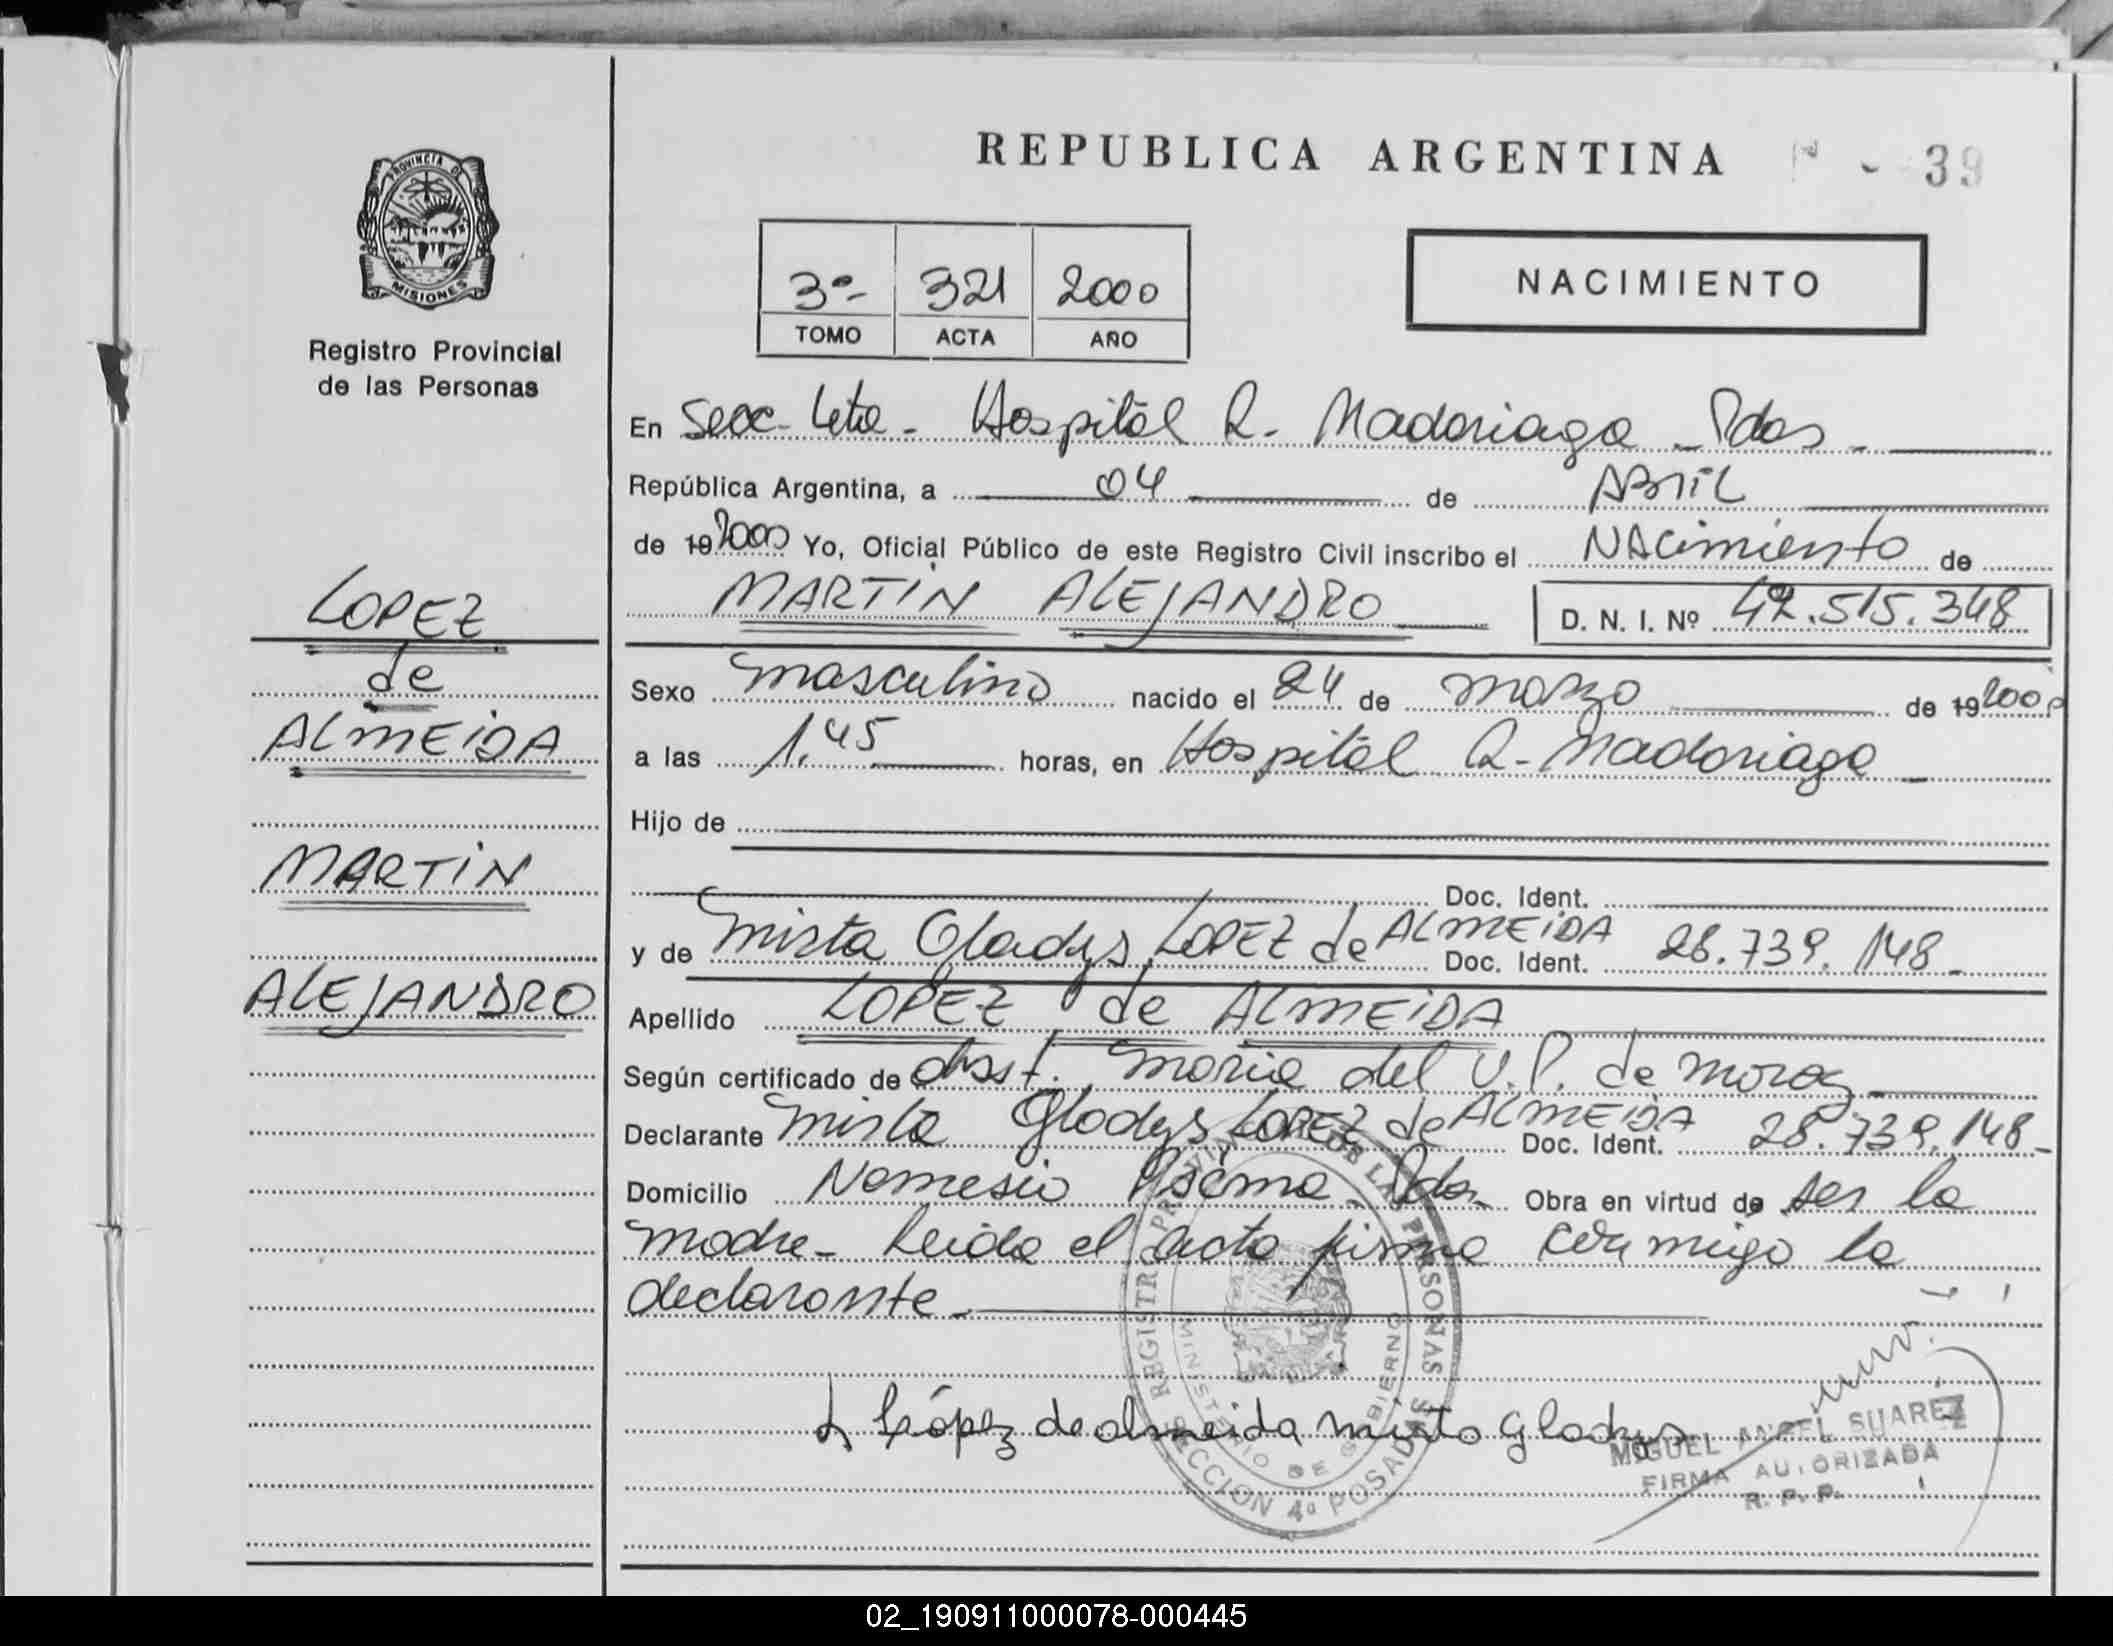 REPUBLICA ARGENTINA
39
PROVINCIA DE
MISIONES
Registro Provincial
de las Personas
3º- 321 2000
TOMO ACTA AÑO
NACIMIENTO
En Secc- 4ta - Hospital R. Madariaga - Pdas -
República Argentina, a 04 de ABRIL
de 19 2000 Yo, Oficial Público de este Registro Civil inscribo el NACimiento de
MARTIN ALEJANDRO D. N. I. Nº 42.515.348
LOPEZ
de
ALMEIDA
MARTIN
ALEJANDRO
Sexo masculino nacido el 24 de marzo de 19 2000
a las 1.45 horas, en Hospital R- Madariaga -
Hijo de
Doc. Ident.
y de Mirta Gladys LOPEZ de ALMEIDA Doc. Ident. 28.739.148-
Apellido LOPEZ de ALMEIDA
Según certificado de Obst. Maria del V.P. de Moraez
Declarante Mirta Gladys LOPEZ de ALMEIDA Doc. Ident. 28.739.148-
Domicilio Nemesio Pdas- Obra en virtud de ser la
madre- Leida el acta firma conmigo la
declarante-
López de almeida mirta Gladys
REGISTRO PROVINCIAL DE LAS PERSONAS
MINISTERIO DE GOBIERNO
SECCION 4ª POSADAS
MIGUEL ANGEL SUAREZ
FIRMA AUTORIZADA
R. P. P.
02_190911000078-000445